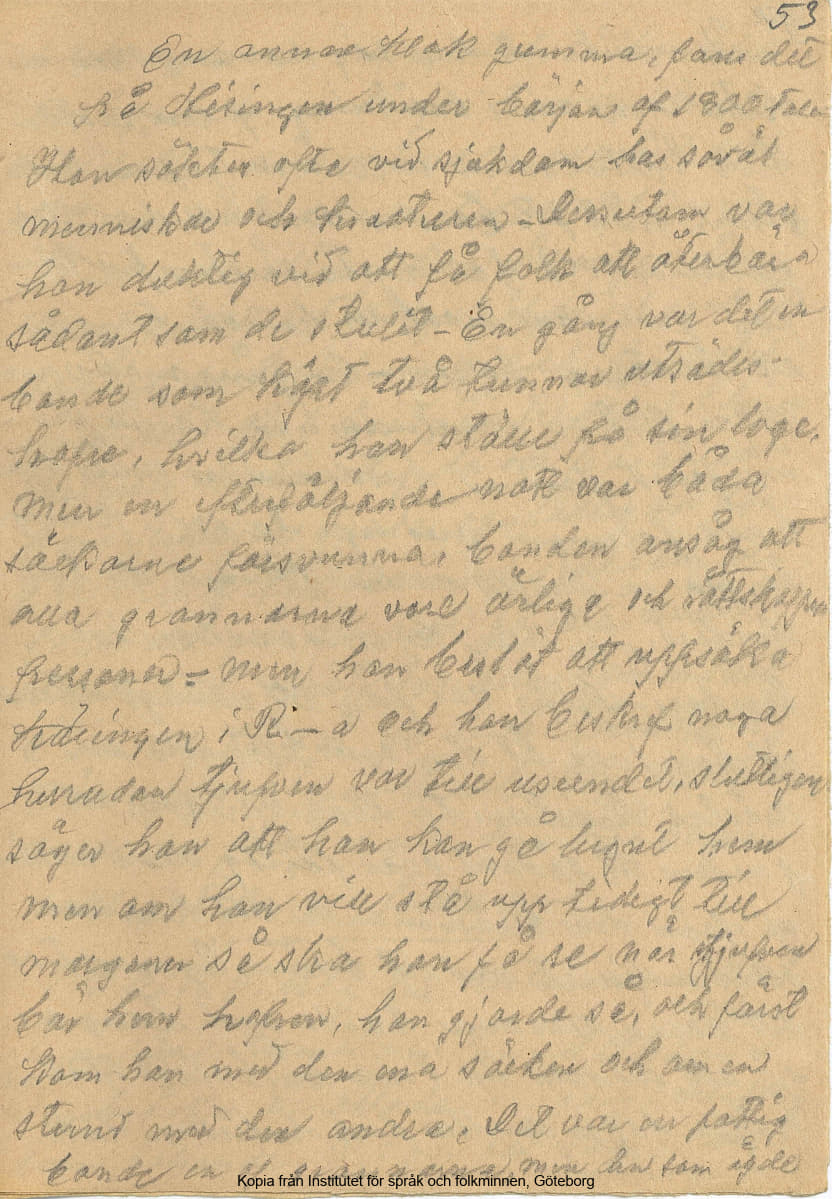 53
En annan klok gumma, fans det
på Hisingen under början af 1800 talet
Hon söktes ofta vid sjukdom hos såväl
menniskor och kreaturen - Dessutom var
hon duktig vid att få folk att återbära
sådant som de stulit - En gång var det en
bonde som köpt två tunnor utsädes-
hafre, hvilka han stälde på sin loge,
men en efterföljande natt var båda
säckarne försvunna, bonden ansåg att
alla grannarna vore ärliga och rättskaffens
personer - men han beslöt att uppsöka
i R - a och hon beskref noga
hurudan tjufven var till useendet, slutligen
säger hon att han kan gå lugnt hem
men om han vill stå upp tidigt till
morgonen så ska han få se när tjufven
bär hem hafren, han gjorde så, och först
kom han med den ena säcken och om en
stund med den andra, Det var en fattig
bonde en af grannarna, men den som ägde
Kopia från Institutet för språk och folkminnen, Göteborg